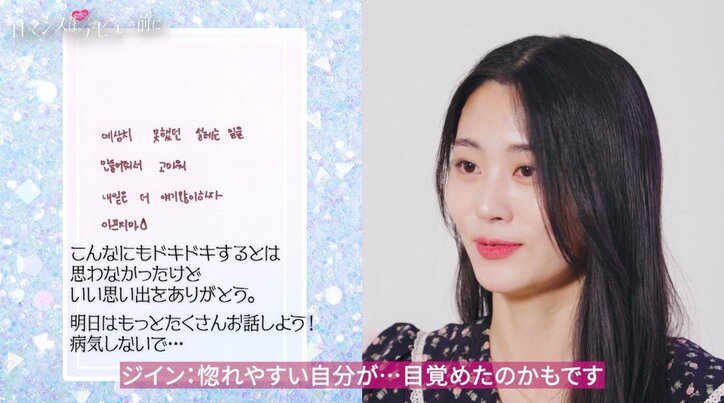 ロマンスは、デビュー前に
예상치 못했던 설레는 일을
만들어줘서 고마워
내일은 더 얘기많이하자
아프지마
こんなにもドキドキするとは
思わなかったけど
いい思い出をありがとう。
明日はもっとたくさんお話しよう!
病気しないで…
ジイン:惚れやすい自分が…目覚めたのかもです